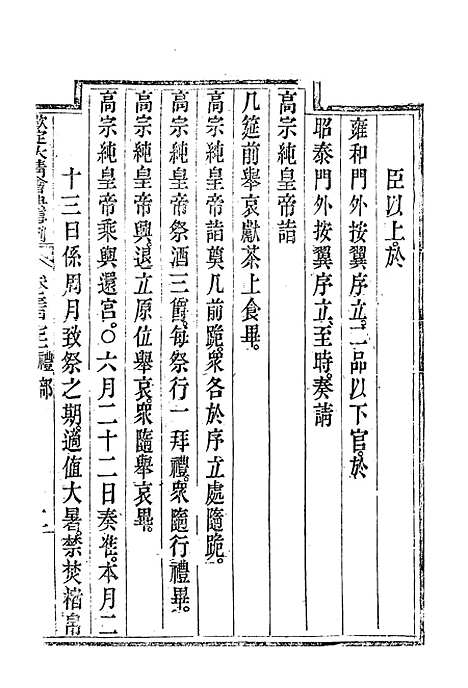 臣以上。於
雍和門外按翼序立。二品以下官。於
昭泰門外按翼序立。至時。奏請
高宗純皇帝詣
几筵前舉哀。獻茶上食畢。
高宗純皇帝詣奠几前跪。眾各於序立處隨跪。
高宗純皇帝祭酒三爵。每祭行一拜禮。眾隨行禮畢。
高宗純皇帝興。退立原位舉哀。眾隨舉哀畢。
高宗純皇帝乘輿還宮。○六月二十二日奏准。本月二
十三日係周月致祭之期。適值大暑。禁焚楮帛
欽定大清會典 禮部